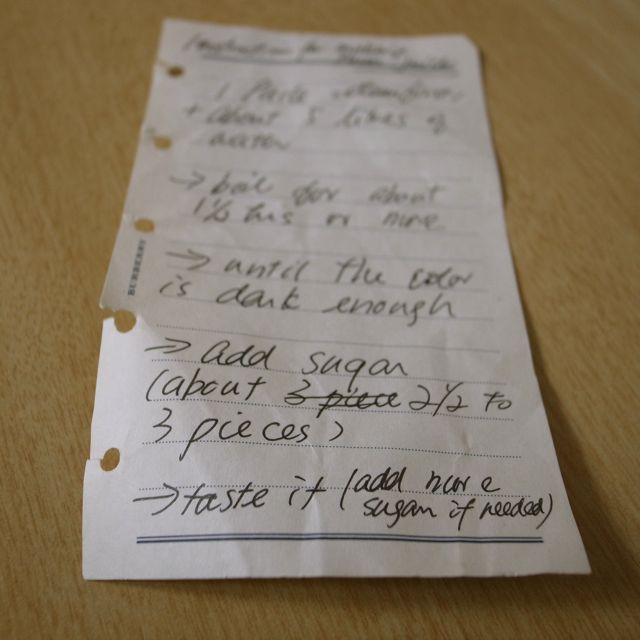 Instruction for making
1 Paste
+ about 5 litres of
water
→ boil for about
1½ hrs or more
→ until the color
is dark enough
BURBERRY
→ add sugar
(about 3 piece 2½ to
3 pieces)
→ taste it (add more
sugar if needed)